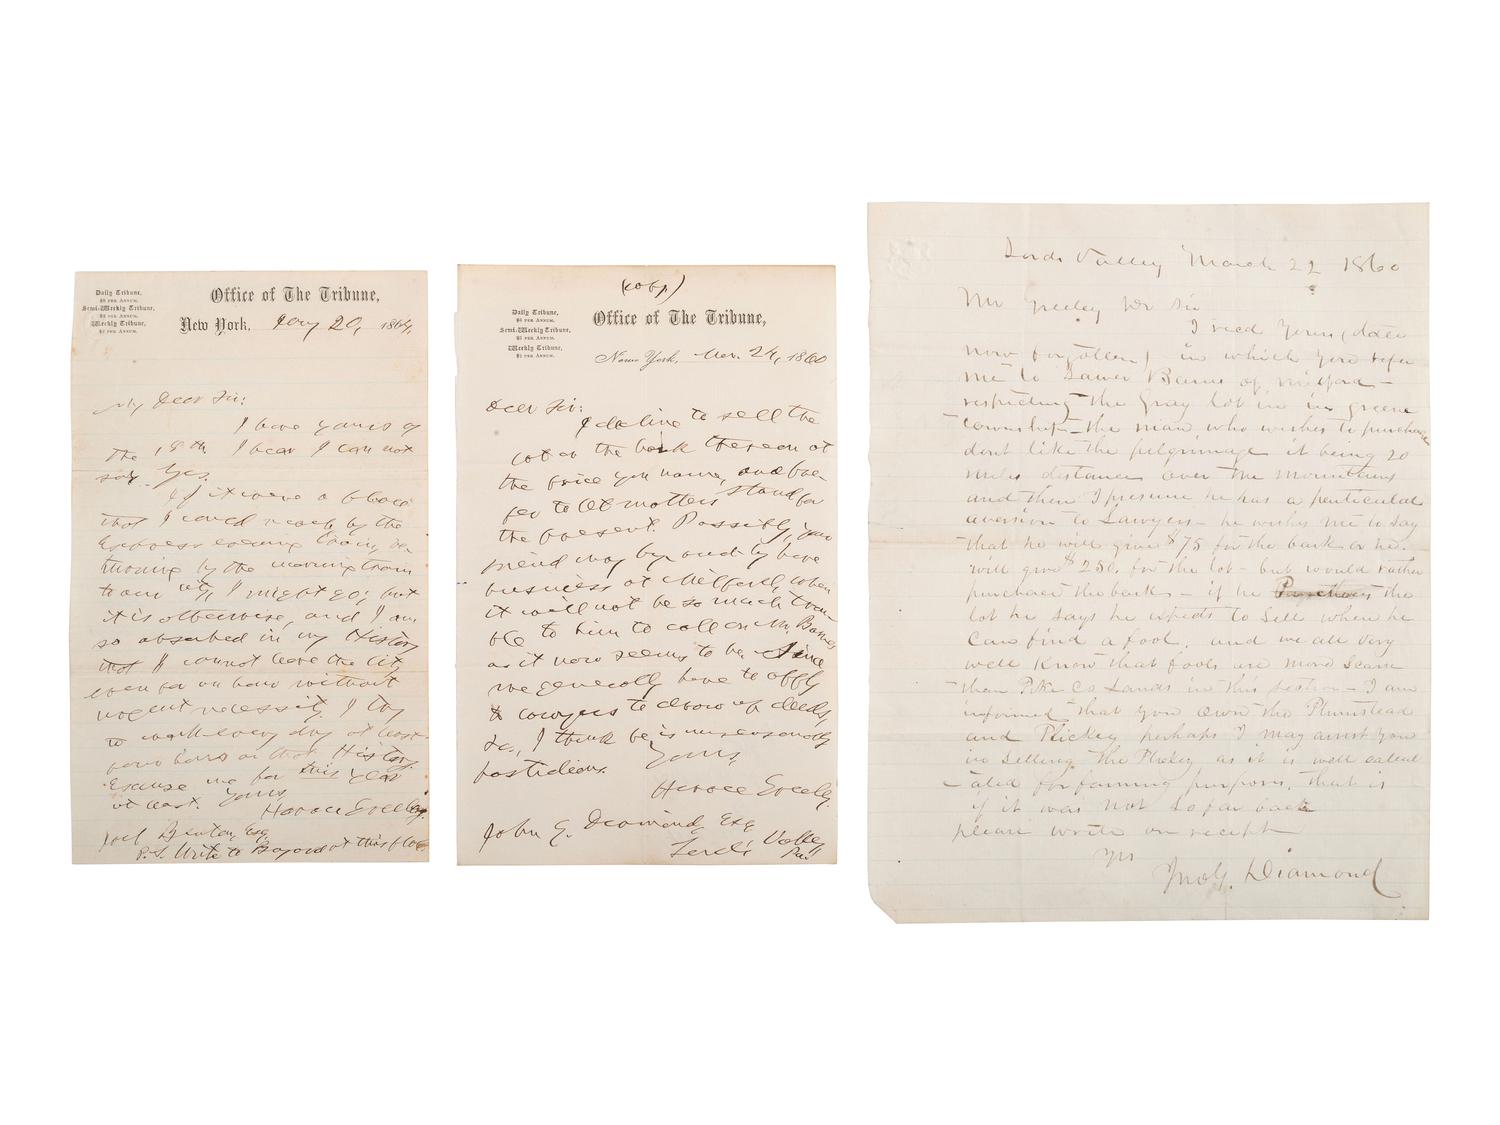 Daily Tribune,
$8 per Annum.
Semi-Weekly Tribune,
$3 per Annum.
Weekly Tribune,
$2 per Annum.
Office of The Tribune,
New York, 20, 1864,
My Dear Sir:
I have yours of
the 18th. I fear I can not
say Yes.
If it were a place
that I could reach by the
Express evening train, re-
turning by the morning train
to our city, I might go; but
it is otherwise, and I am
so absorbed in my History
that I cannot leave the city
even for an hour without
urgent necessity. I try
to work every day at least
four hours on that History.
Excuse me for this year
at least. Yours,
Horace Greeley.
Joel Benton, Esq.
P.S. Write to Bayard at this place
(Copy)
Daily Tribune,
$6 per Annum.
Semi-Weekly Tribune,
$3 per Annum.
Weekly Tribune,
$2 per Annum.
Office of The Tribune,
New York, Mar. 24, 1860
Dear Sir:
I decline to sell the
lot or the bark thereon at
the price you name, and pre-
fer to let matters stand for
the present. Possibly, your
friend may by and by have
business at Milford, when
it will not be so much trou-
ble to him to call on Mr. Barnes
as it now seems to be. Since
we generally have to apply
to lawyers to draw up deeds,
&c., I think he is unreasonably
fastidious. Yours,
Horace Greeley.
John G. Diamond, Esq
Lord's Valley
Pa.
Lords Valley March 22 1860
Mr Greeley Dr Sir
I recd Yours (date
now forgotten) in which you refer
me to Lawer Barnes of Milford -
respecting the Gray lot in in greene
township - the man who wishes to purchase
dont like the pilgrimage it being 20
miles distance over the mountains
and then I presume he has a perticular
aversion to Lawyers - he wishes me to say
that he will give $75 for the bark or he
will give $250. for the lot - but would rather
purchase the bark - if he the
lot he says he expects to sell when he
can find a fool, and we all very
well know that fools are more scarse
than Pike Co Lands in this section - I am
informed that you own the Plumstead
and perhaps I may assist you
in selling the as it is well calcul
-ated for farming purposes, that is
if it was not so far back
please write on receipt
Yrs
Jno G. Diamond